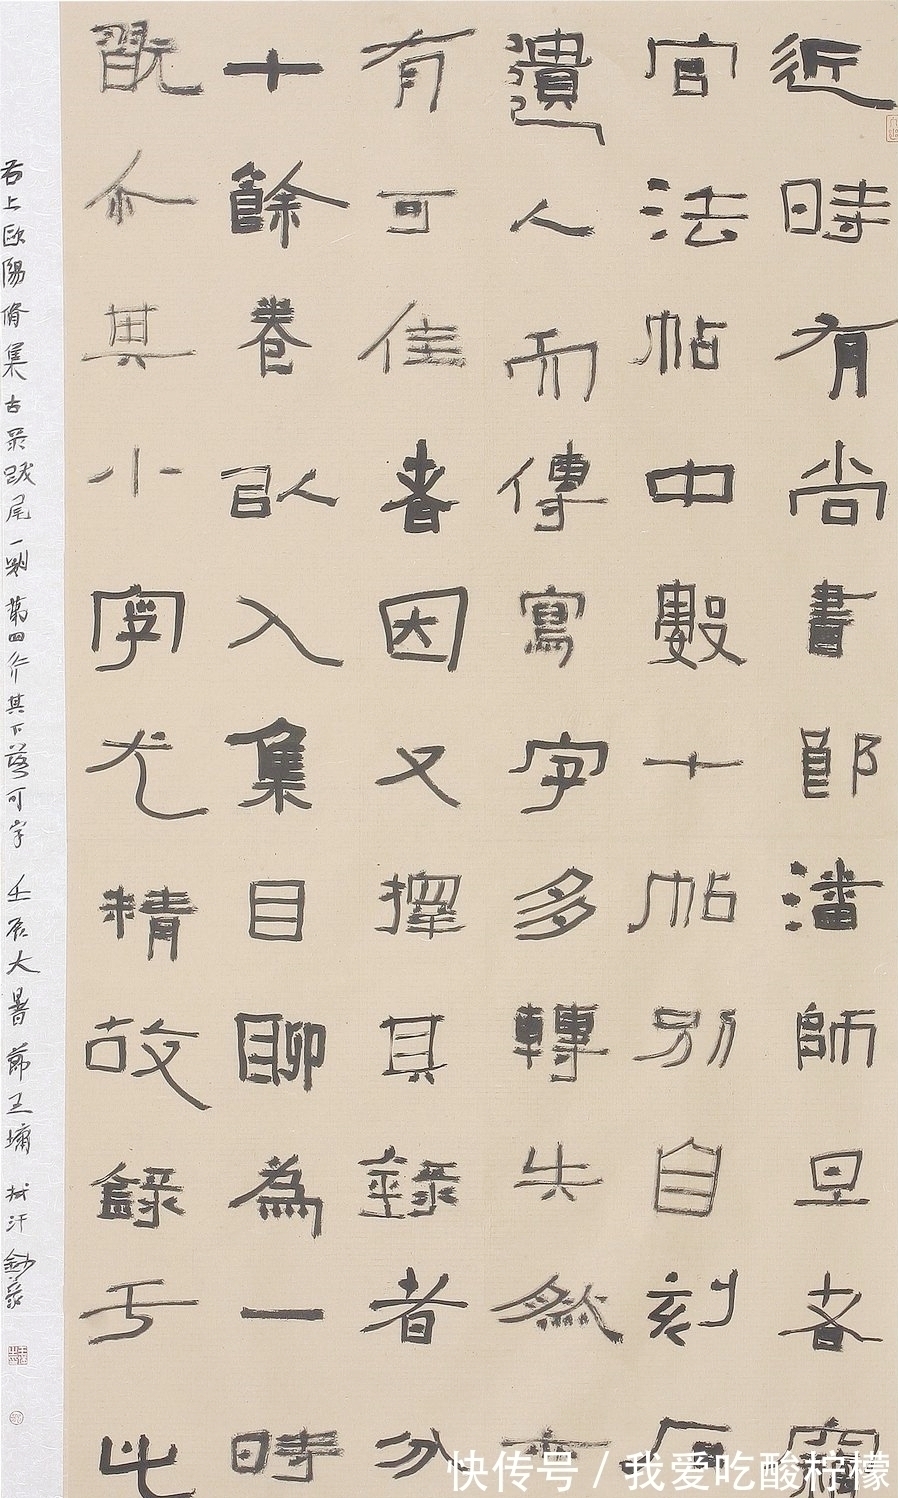 近時有尚書郎潘師旦者竊
官法帖中數十帖別自刻石以
遺人而傳寫字多轉失然亦
有可佳者因又擇其錄者分
十餘卷以入集目聊為一時
翫爾其小字尤精故錄于此
右上歐陽脩集古錄跋尾一則第四行其下落可字 壬辰大暑 節王墉 拭汗鈔录
快传号 / 我爱吃酸柠檬